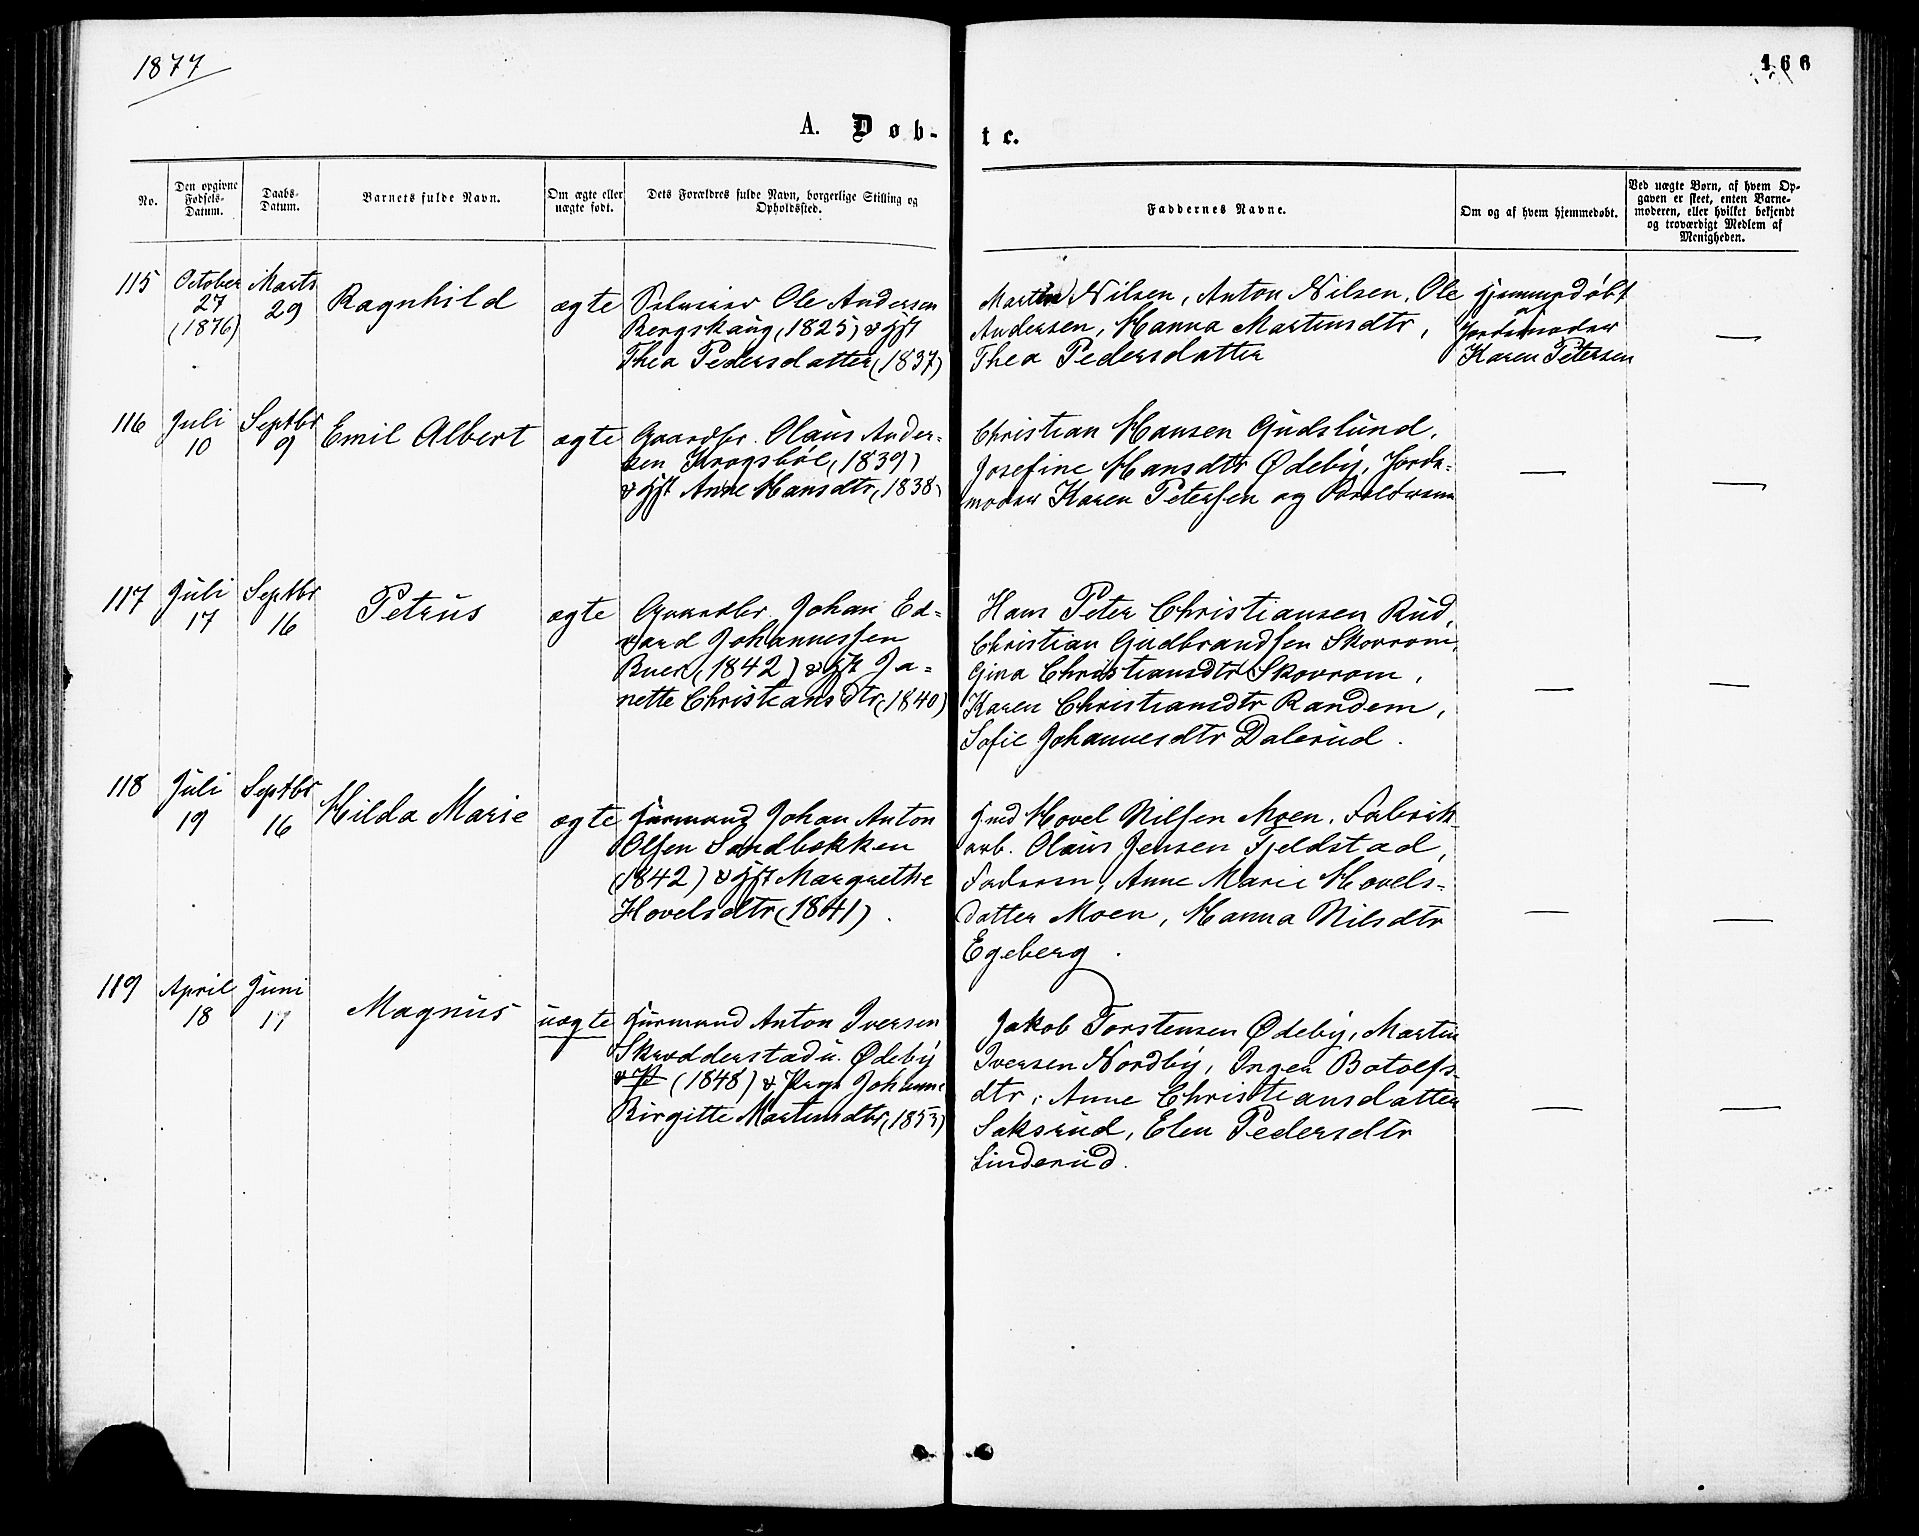 1877
166
A. Døb-
te.
No.
Den opgivne
Fødsels-
Datum.
Daabs-
Datum.
Barnets fulde Navn.
Om ægte eller
uægte født.
Dets Forældres fulde Navn, borgerlige Stilling og
Opholdssted.
Faddernes Navne.
Om og af hvem hjemmedøbt.
Ved uægte Børn, af hvem Op-
gaven er skeet, enten Barne-
moderen, eller hvilket bekjendt
og troværdigt Medlem af
Menigheden.
115
October
27
(1876)
Marts
29
Ragnhild
ægte
Ole Andersen
Bergskaug (1825) & Gift
Thea Pedersdatter (1837)
Martin Nilsen, Anton Nilsen, Ole
Andersen, Hanna Martinsdtr,
Thea Pedersdatter
Hjemmedøbt
af
Jordemoder
Karen Petersen
—
116
Juli
10
Septbr
9
Emil Albert
ægte
Gaardbr. Olaus Ander-
sen Krogsböl (1839)
& Gift Anne Hansdtr (1838)
Christian Hansen Gudslund,
Josefine Hansdtr Ødeby, Jorde-
moder Karen Petersen og Forældrene
—
—
117
Juli
17
Septbr
16
Petrus
ægte
Gaardbr. Johan Ed-
vard Johannessen
Buer (1842) & Gift Ja-
nette Christiansdtr (1840)
Hans Peter Christiansen Rud,
Christian Gudbrandsen Skovrom,
Gina Christiansdtr Skovrom,
Karen Christiansdtr Randem,
Sofie Johannesdtr Dalerud.
—
—
118
Juli
19
Septbr
16
Hilda Marie
ægte
Husmand Johan Anton
Olsen Sandbækken
(1842) & Gift Margrethe
Hovelsdtr (1841).
Gmd Hovel Nilsen Moen, Fabrik-
arb. Olaus Jensen Fjeldstad,
Faderen, Anne Marie Hovels-
datter Moen, Hanna Nilsdtr
Egeberg.
—
—
119
April
18
Juni
17
Magnus
uægte
Husmand Anton Iversen
Skrædderstad u. Ødeby
(1848) & Pige Johanne
Birgitte Martinsdtr (1853)
Jakob Torstensen Ødeby, Martin
Iversen Nordby, Inger Botolfs-
dtr, Anne Christiansdatter
Saksrud, Elen Pedersdtr
Linderud.
—
—